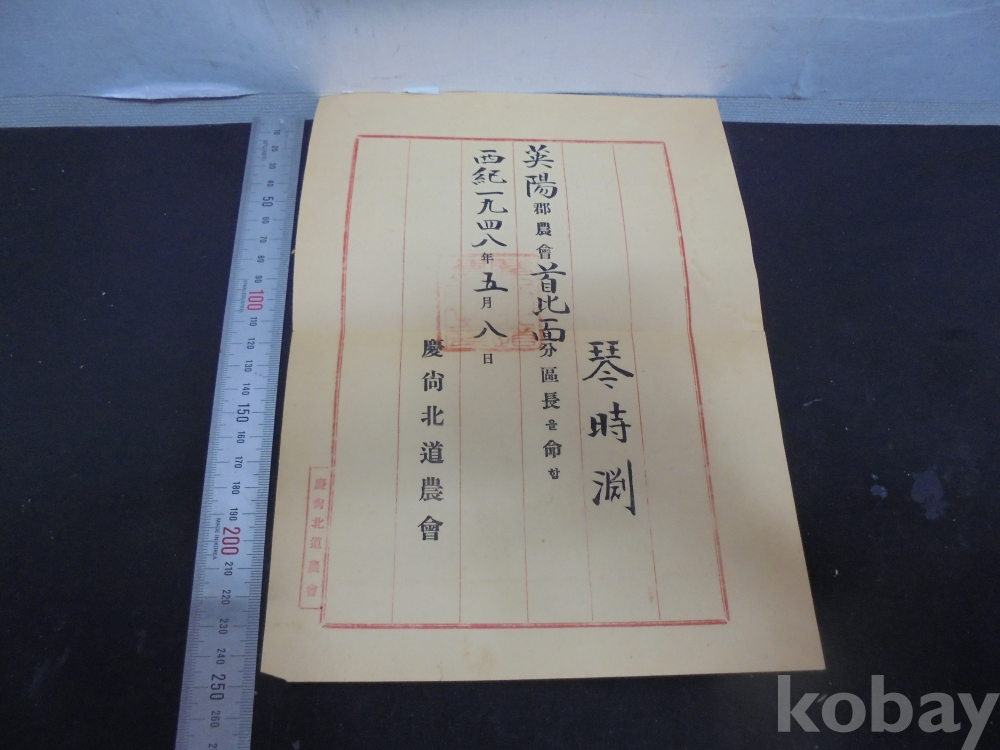 琴時淵
英陽郡農會首比面分區長을命함
西紀一九四八年五月八日
慶尙北道農會
慶尙北道農會
kobay